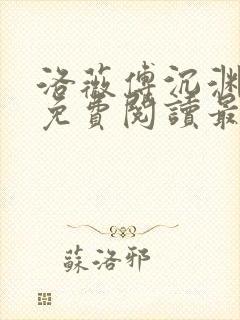 洛薇傅沉渊
免費閱讀最
蘇洛邪